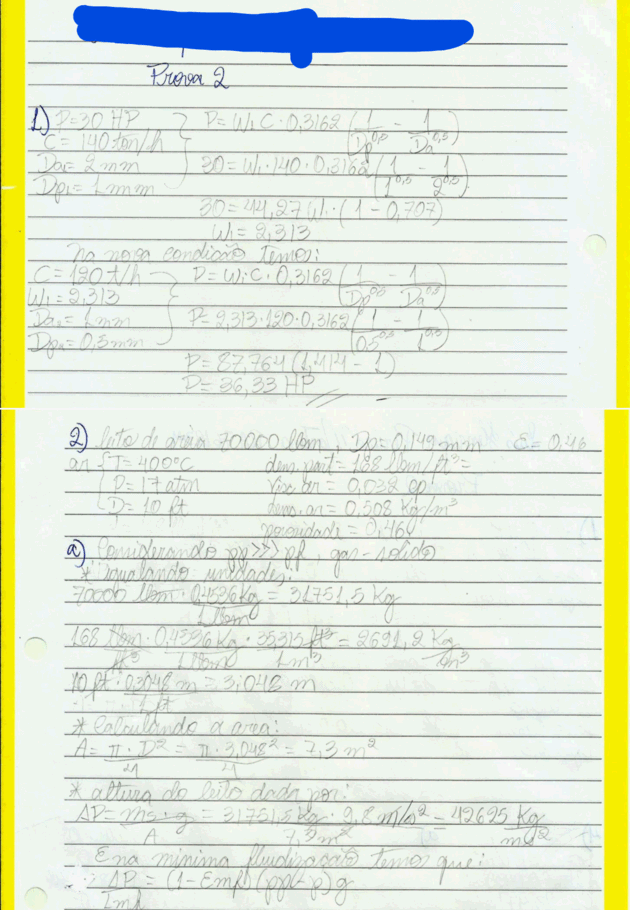 Prova 2
1) P=30 HP P=W₁C·0,3162 (1/Dp^0,5 - 1/Da^0,5)
C=140 ton/h
Da₁=2mm 30=W₁·140·0,3162 (1/1^0,5 - 1/2^0,5)
Dp₁=1mm
30=44,27W₁·(1-0,707)
W₁=2,313
na nova condição temos:
C=120 t/h P=W₁C·0,3162 (1/Dp^0,5 - 1/Da^0,5)
W₁=2,313
Da₂=1mm P=2,313·120·0,3162 (1/0,5^0,5 - 1/1^0,5)
Dp₂=0,5mm
P=87,764(1,414-1)
P=36,33 HP
2) leito de areia 70000 lbm, Dp=0,149mm ε=0,46
ar T=400°C dens. part=168 lbm/ft³=
P=17atm visc ar=0,032 cp
D=10 ft dens. ar=0,508 Kg/m³
porosidade=0,46
a) Considerando ρp>>>ρf, gas-solido
* Igualando unidades:
70000 lbm · 0,4536Kg/1lbm = 31751,5 Kg
168 lbm/ft³ · 0,4536 Kg/1lbm · 35,315ft³/1m³ = 2691,2 Kg/m³
10 ft · 0,3048 m/1ft = 3,048 m
* Calculando a area:
A = π·D²/4 = π·3,048²/4 = 7,3 m²
* altura do leito dada por:
ΔP = ms·g/A = 31751,5Kg · 9,8 m/s²/7,3m² = 42625 Kg/ms²
E na mínima fluidização temos que:
ΔP/Lmf = (1-Emf)(ρp-ρ)g